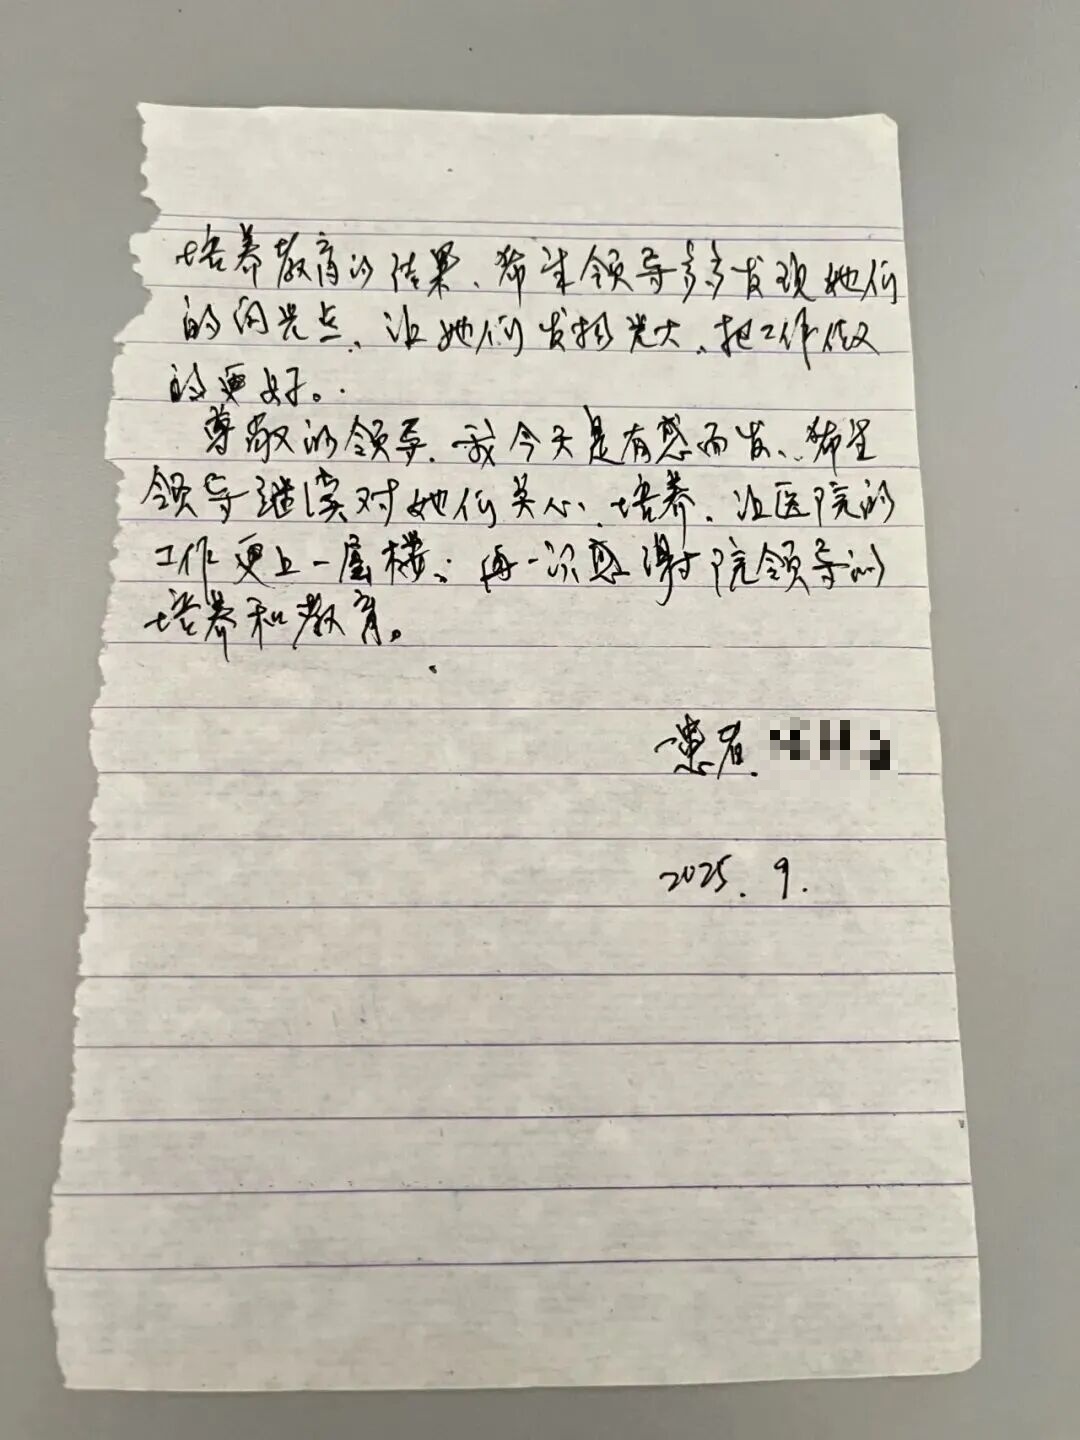 培养教育的结果、希望领导多多发现她们
的闪光点、让她们发扬光大、把工作做
的更好。
尊敬的领导、我今天是有感而发、希望
领导继续对她们关心、培养、让医院的
工作更上一层楼；再一次感谢院领导的
培养和教育。
患者.
2025. 9.